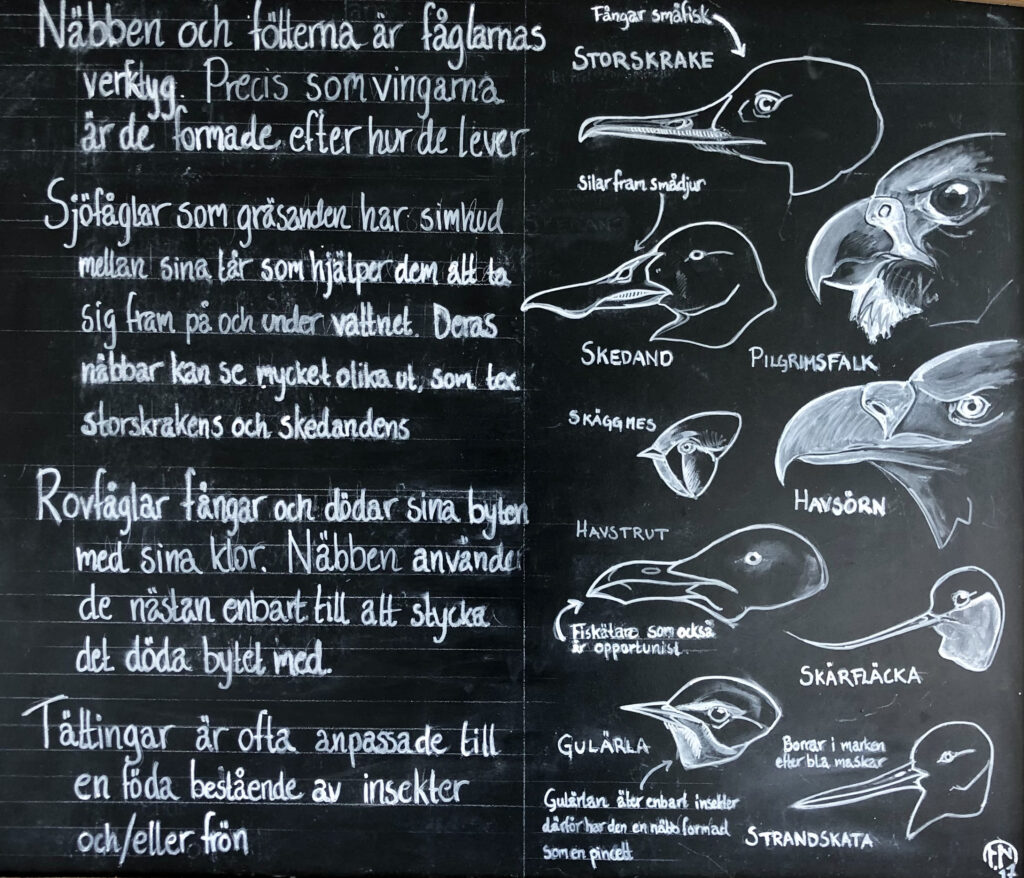 Näbben och fötterna är fåglarnas
verktyg. Precis som vingarna
är de formade efter hur de lever
Sjöfåglar som gräsanden har simhud
mellan sina tår som hjälper dem att ta
sig fram på och under vattnet. Deras
näbbar kan se mycket olika ut, som tex
storskrakens och skedandens
Rovfåglar fångar och dödar sina byten
med sina klor. Näbben använder
de nästan enbart till att stycka
det döda bytet med.
Tättingar är ofta anpassade till
en föda bestående av insekter
och/eller frön
Fångar småfisk
STORSKRAKE
Silar fram smådjur
SKEDAND
PILGRIMSFALK
SKÄGGMES
HAVSÖRN
HAVSTRUT
Fiskätare som också
är opportunist.
SKÄRFLÄCKA
GULÄRLA
Gulärlan äter enbart insekter
därför har den en näbb formad
som en pincett
Borrar i marken
efter bla. maskar
STRANDSKATA
FN
17